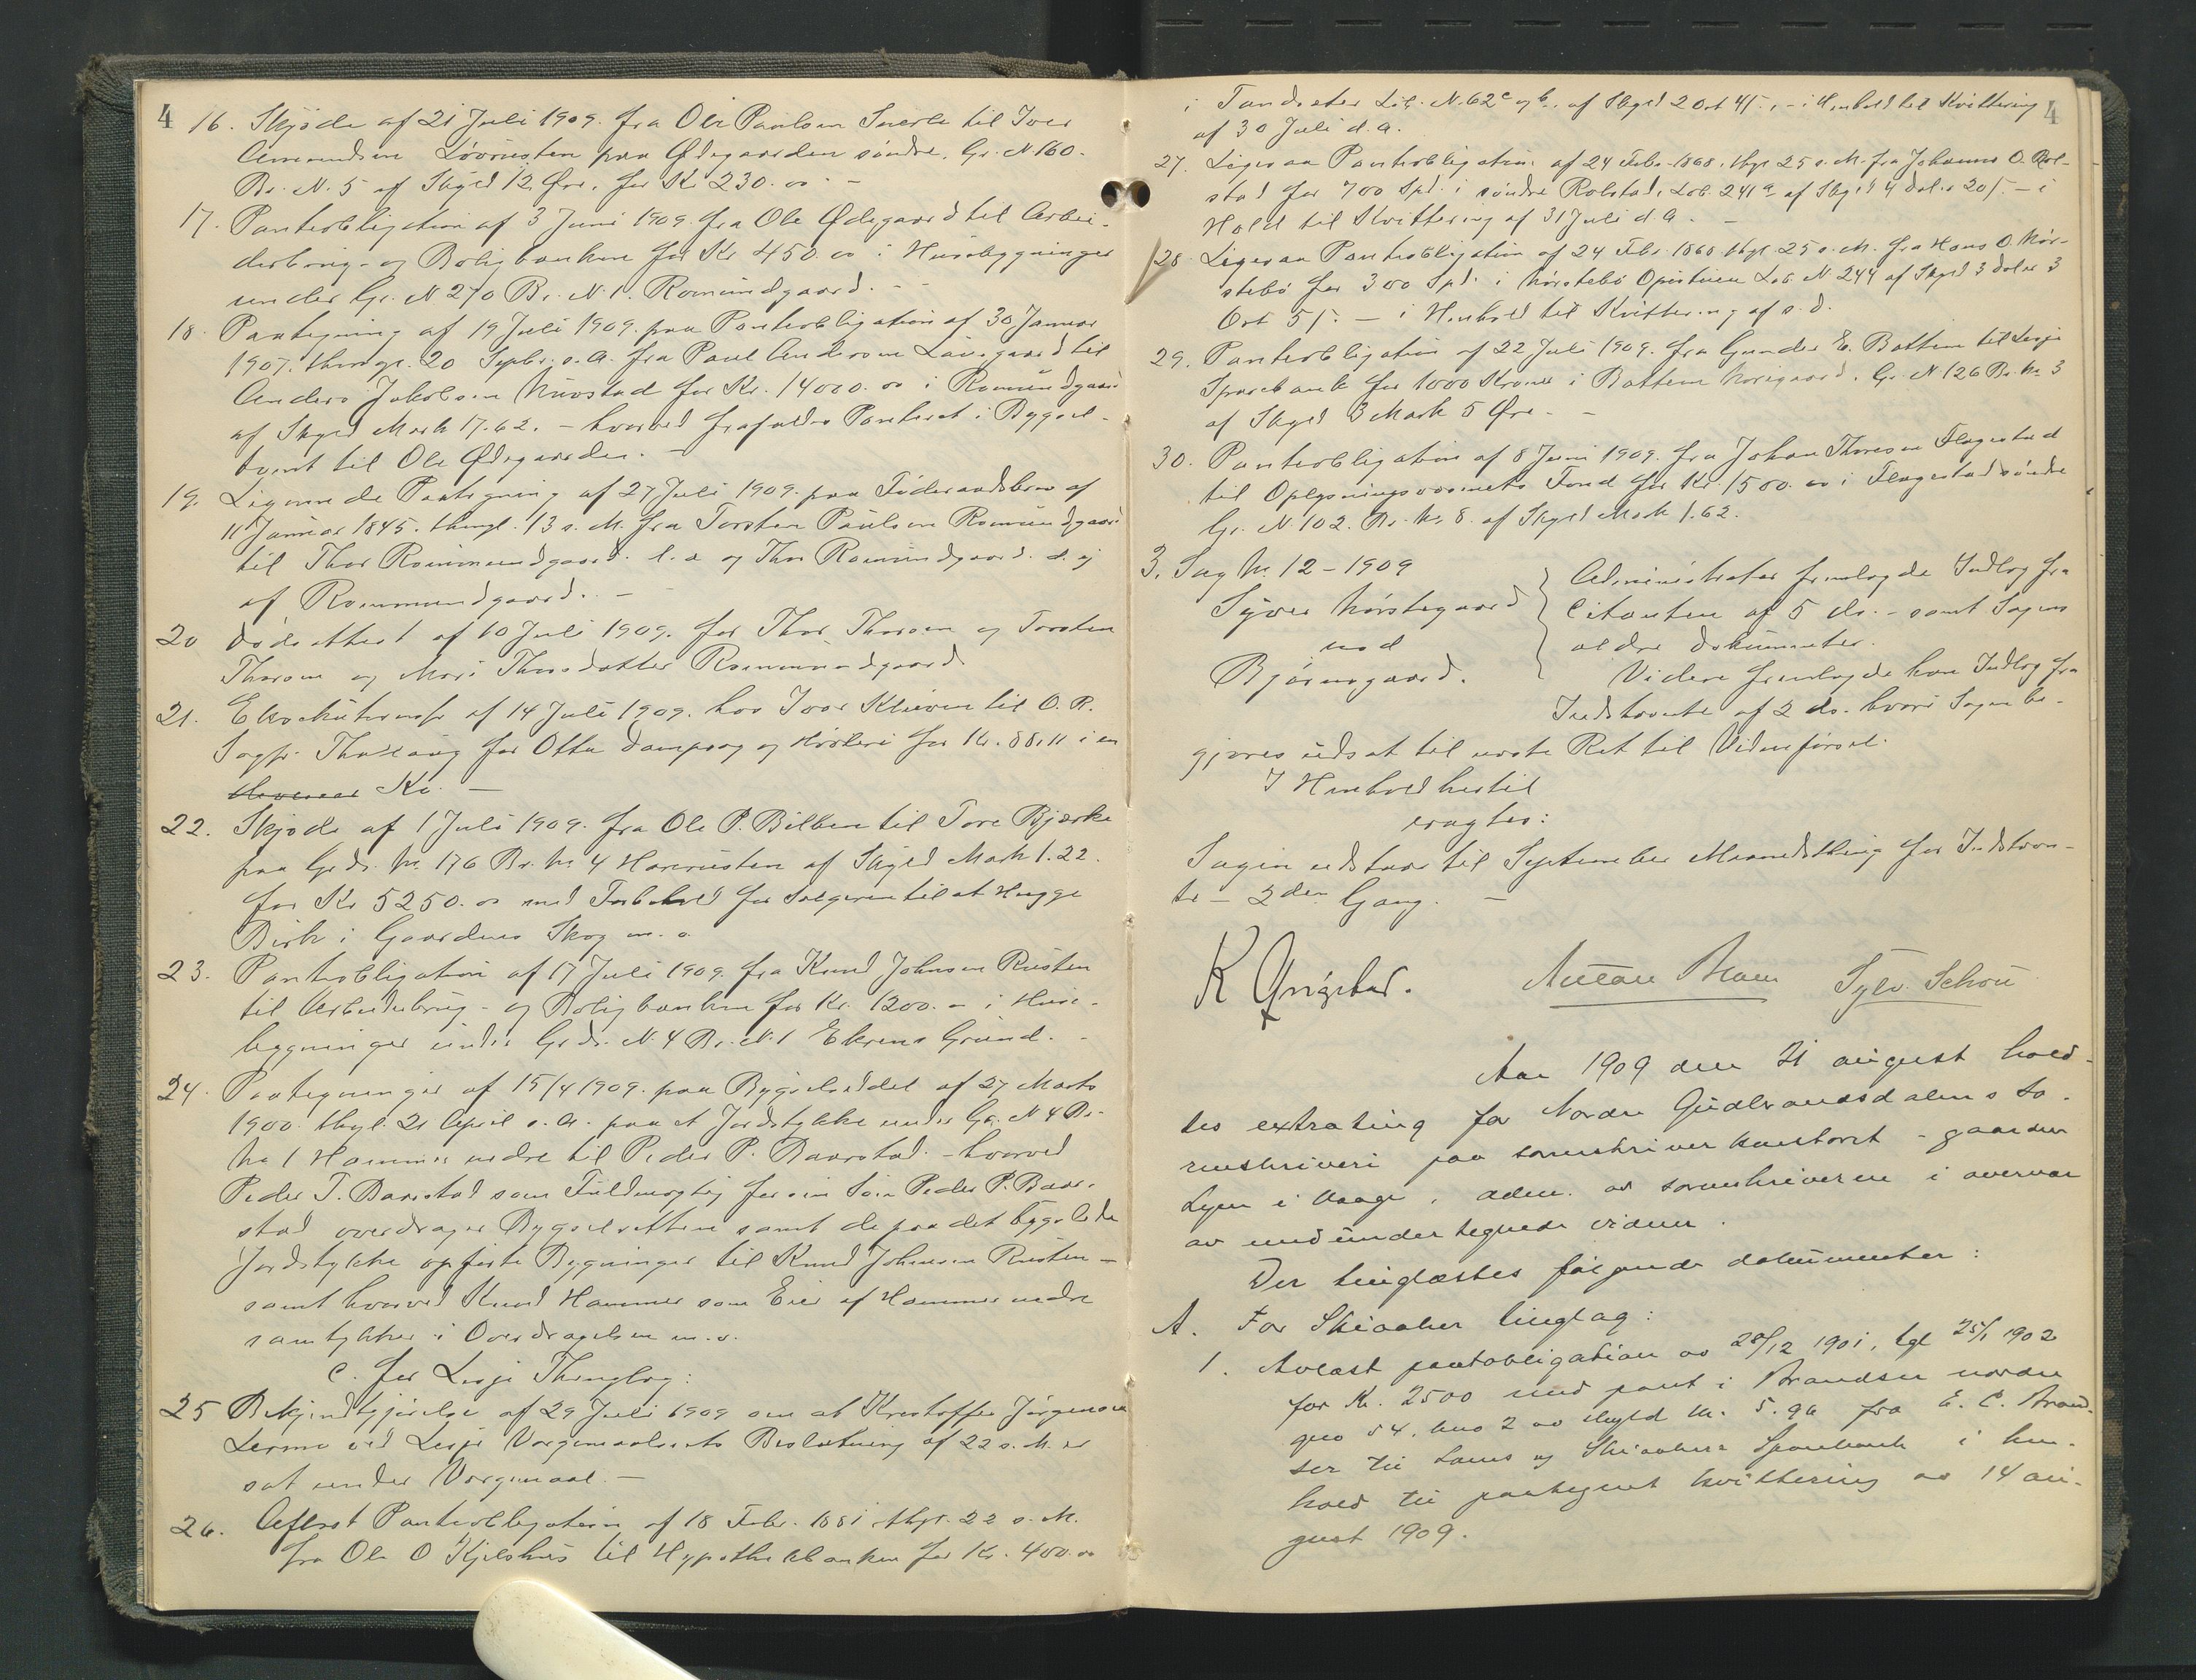 4
16. Skjøde af 21 Juli 1909. fra Ole Paulsen til Iver
Amundsen Løvrusten paa Ødegaarden søndre, Gr. N. 160.
Br. N. 5 af Skyld 12 Øre, for Kr 230.00 —
17. Panteobligation af 3 Juni 1909 fra Ole Ødegaard til Arbei-
derbrug- og Boligbanken for Kr 450.00 i Husebygninger
under Gr. N 270 Br. N. 1. Romundgaard. —
18. Paategning af 19 Juli 1909. paa Panteobligation af 30 Januar
1907. thingl. 20 Septbr. s. A. fra Paul Andersen til
Anders Jakobsen for Kr. 14000.00 i Romundgaard
af Skyld Mark 17.62. — hvorved frafaldes Panteret i Bygsel-
tomt til Ole Ødegaarden. —
19. Lignende Paategning af 27 Juli 1909. paa Føderaadsbrev af
11 Januar 1845. thingl. 13 s. M. fra Torsten Paulsen Romundgaard
til Thor Romundgaard. l. a. og Thor Romundgaard d. y
af Romundgaard. —
20 Dødsattest af 10 Juli 1909. for Thor Thorsen og Torsten
Thorsen og Mari Thorsdatter Romundgaard.
21. Exekutionsfr. af 14 Juli 1909. hos Iver Kleiven til O. R.
Sagfr. Thallaug for Otta Dampsag og Høvleri for Kr. 88.11 i en
Ku. —
22. Skjøde af 1 Juli 1909. fra Ole P. Bilben til Tore Bjørke
paa Grds. No. 176 Br. No. 4 Haverusten af Skyld Mark 1.22.
for Kr 5250.00 med Forbehold for Sælgeren til at Hugge
Birk i Gaardens Skog m. v.
23. Panteobligation af 17 Juli 1909. fra Knud Johnsen Rusten
til Arbeiderbrug- og Boligbanken for Kr. 1200.— i Huse-
bygninger under Grds. N. 4 Br. N. 1 Ekrens Grund. —
24. Paategninger af 15/4 1909. paa Bygselseddel af 27 Marts
1900. thgl. 21 April s. A. paa et Jordstykke under Gr. N 4 Br.
No 1 Hammer nedre til Peder P. Baarstad. — hvorved
Peder T. Baarstad som Fuldmægtig for sin Søn Peder P. Baar-
stad overdrager Bygselretten samt de paa det bygslede
Jordstykke opførte Bygninger til Knud Johnsen Rusten —
samt hvorved Knud Hammer som Eier af Hammer nedre
samtykker i Overdragelsen m. v.
C. for Lesje Thinglag:
25 Bekjendtgjørelse af 29 Juli 1909 om at Kristoffer Jørgensen
ved Lesje Værgemaalsraads Beslutning af 22 s. M. er
sat under Værgemaal. —
26. Aflæst Panteobligation af 18 Febr. 1881 thgl. 22 s. M.
fra Ole O Kjelshus til Hypothekbanken for Kr. 400.00
4
i Tandseter Løb. N. 62c og b. af Skyld 2 Ort 4 ß., — i Henhold til Kvittering
af 30 Juli d. A.
27. Ligesaa Panteobligation af 24 Febr. 1868. thgl 25 s. M. fra Johannes O. Rol-
stad for 700 Spd. i søndre Rolstad, Løb. 241a af Skyld 4 daler 20 ß. — i
Hold til Kvittering af 31 Juli d. A. —
28. Ligesaa Panteobligation af 24 Febr. 1868 thgl. 25 s. M. fra Hans O. Nør-
stebø for 300 Spd. i Nørstebø Opistuen Løb N. 244 af Skyld 3 daler 3
Ort 5 ß. — i Henhold til Kvittering af s. d.
29. Panteobligation af 22 Juli 1909. fra Gunder E. Bottem til Lesje
Sparebank for 1000 Kroner i Bottem Norigaard, Gr. N 126 Br. No 3
af Skyld 3 Mark 5 Øre. —
30. Panteobligation af 8 Juni 1909. fra Johan Thoresen Flagestad
til Oplysningsvæsenets Fond for Kr. 1500.00 i Flagestad søndre
Gr. N. 102. Br. No. 8. af Skyld Mark 1.62.
3. Sag No. 12 — 1909
Syver Nørstegaard
mod
Bjørnsgaard.
Administrator fremlagde Indlæg fra
Citanten af 5 ds. — samt Sagens
ældre Dokumenter.
Videre fremlagde han Indlæg fra
Indstevnte af 2 ds. hvori Sagen be-
gjæres udsat til næste Ret til Vidneførsel.
I Henhold hertil
eragtes:
Sagen udstaar til September Maanedsthing for Indstevn-
te — 2den Gang. —
K Ongstad.
Anton Moen
Sylv. Schou
Aar 1909 den 21 august hold-
tes extrating for Nordre Gudbrandsdalens so-
renskriveri paa sorenskriverkontoret – gaarden
i Vaage, adm. av sorenskriveren i overvær
av medundertegnede vidner.
Der tinglæstes følgende dokumenter:
A. For Skiaaker tinglag:
1. Avlæst pantobligation av 28/12 1901, tgl 25/1 1902
for Kr. 2500 med pant i Brandsar nordre
gno 54, bno 2 av skyld M. 5.96 fra E. C. Brand-
ser til Loms og Skiaakers Sparebank i hen-
hold til paategnet kvittering av 14 au-
gust 1909.